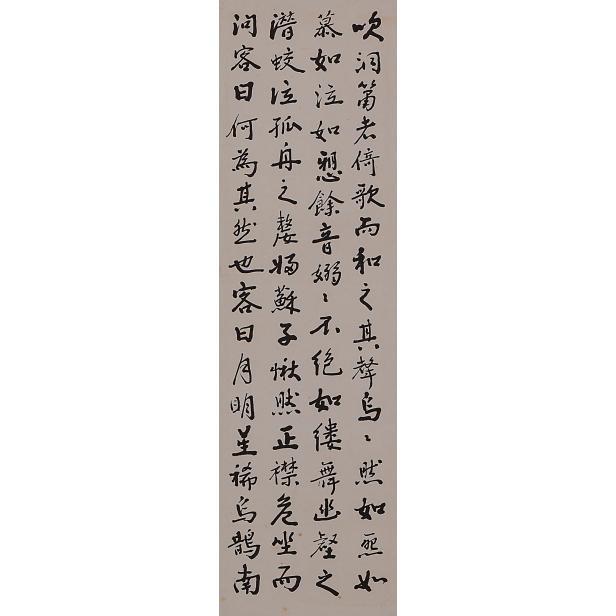 吹洞簫者倚歌而和之其聲烏〻然如怨如
慕如泣如愬餘音嫋〻不絕如縷舞幽壑之
潛蛟泣孤舟之嫠婦蘇子愀然正襟危坐而
問客曰何為其然也客曰月明星稀烏鵲南